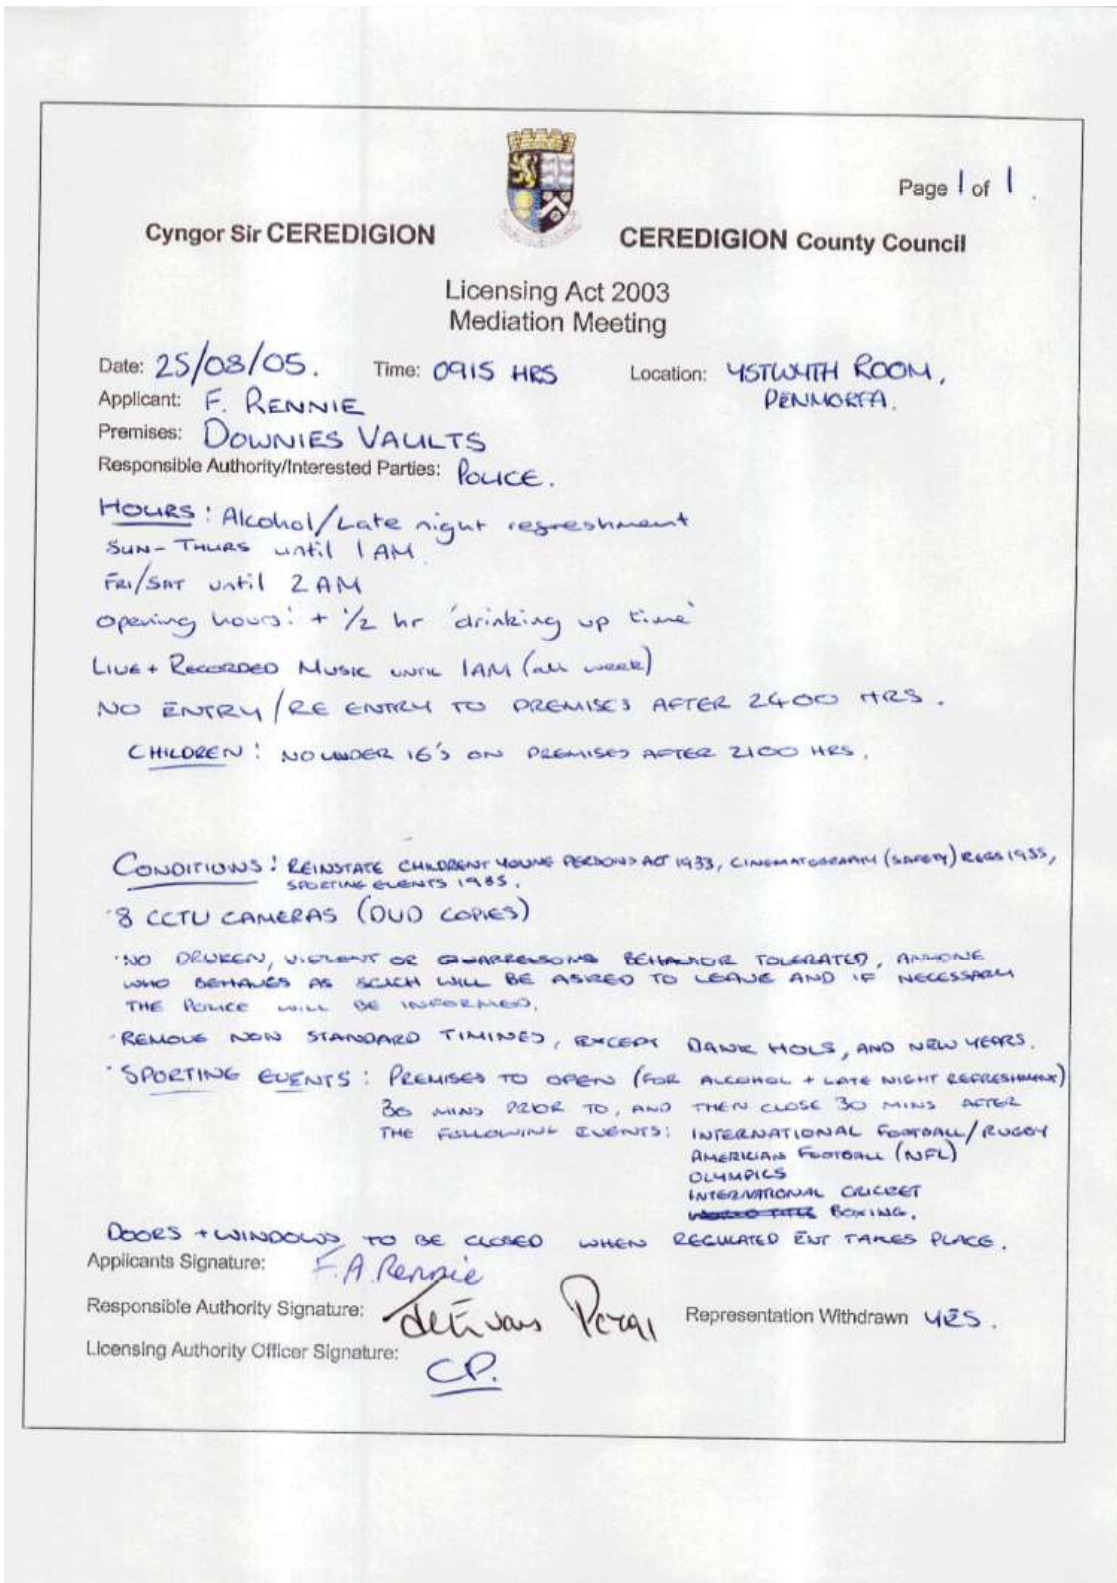 Page 1 of 1
Cyngor Sir CEREDIGION
CEREDIGION County Council
Licensing Act 2003
Mediation Meeting
Date: 25/08/05. Time: 0915 HRS Location: YSTWYTH ROOM,
PENMORFA.
Applicant: F. RENNIE
Premises: DOWNIES VAULTS
Responsible Authority/Interested Parties: POLICE.
HOURS: Alcohol/Late night refreshment
SUN-THURS until 1 AM.
FRI/SAT until 2 AM
opening hours: + 1/2 hr 'drinking up time'
LIVE + RECORDED MUSIC UNTIL 1AM (all week)
NO ENTRY/RE ENTRY TO PREMISES AFTER 2400 HRS.
CHILDREN: NO UNDER 16'S ON PREMISES AFTER 2100 HRS.
CONDITIONS: REINSTATE CHILDREN + YOUNG PERSONS ACT 1933, CINEMATOGRAPHY (SAFETY) REGS 1955,
SPORTING EVENTS 1985.
· 8 CCTV CAMERAS (DVD COPIES)
· NO DRUKEN, VIOLENT OR QUARRELSONG BEHAVIOR TOLERATED, ANYONE
WHO BEHAVES AS SUCH WILL BE ASKED TO LEAVE AND IF NECESSARY
THE POLICE WILL BE INFORMED.
· REMOVE NON STANDARD TIMINGS, EXCEPT BANK HOLS, AND NEW YEARS.
· SPORTING EVENTS: PREMISES TO OPEN (FOR ALCOHOL + LATE NIGHT REFRESHMENT)
30 MINS PRIOR TO, AND THEN CLOSE 30 MINS AFTER
THE FOLLOWING EVENTS: INTERNATIONAL FOOTBALL/RUGBY
AMERICIAN FOOTBALL (NFL)
OLYMPICS
INTERNATIONAL CRICKET
WORLD TITLE BOXING.
DOORS + WINDOWS TO BE CLOSED WHEN REGULATED ENT TAKES PLACE.
Applicants Signature: F.A. Rennie
Responsible Authority Signature: Representation Withdrawn YES.
Licensing Authority Officer Signature: CP.